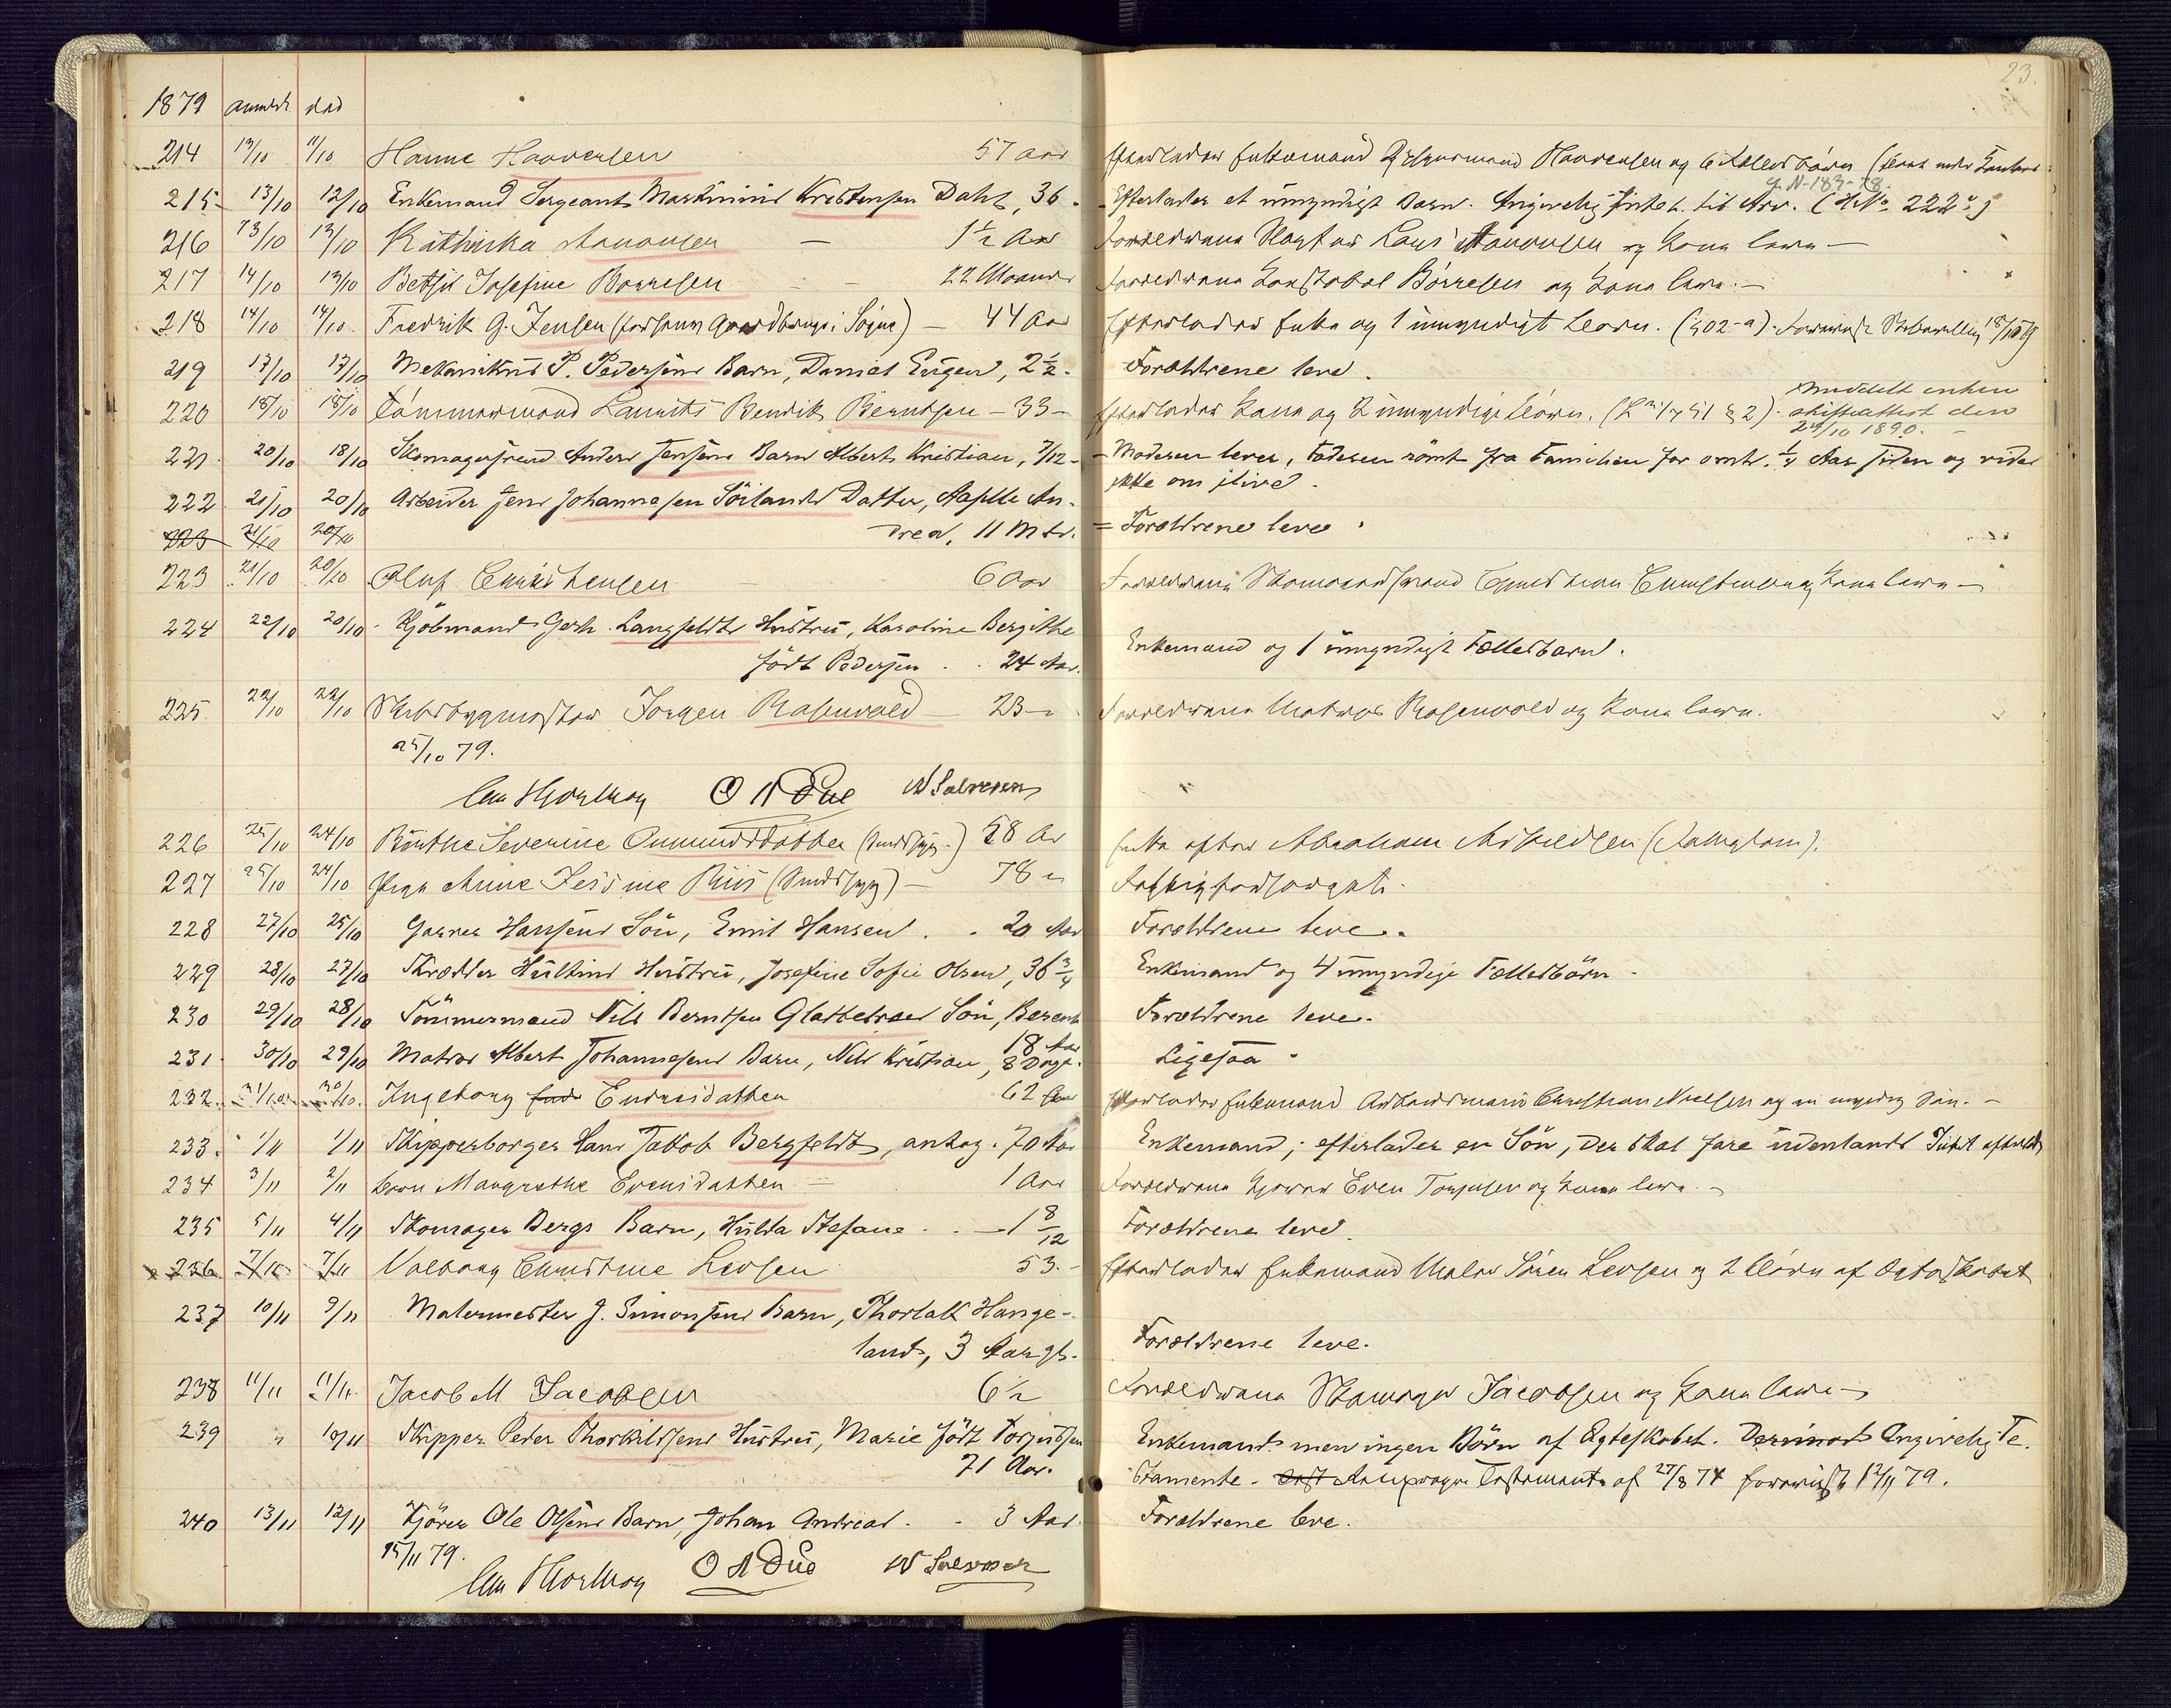 23.
1879 anmeldt død
214 13/10 11/10 Hanne Haavorsen 57 Aar Efterlader Enkemand Haavorsen og 6 Fællesbørn
215 13/10 12/10 Enkemand Sergeant Martinius Kristensen Dahl, 36. Efterlader et umyndigt Barn. Angivelig Intet til Arv.
216 13/10 12/10 Kathinka Aanonsen — 1½ Aar Forældrene Lars Aanonsen og Kone leve —
217 14/10 13/10 Betsy Josefine Børresen 22 Maaneder Forældrene Konstabel Børresen og Kone leve. —
218 14/10 14/10 Fredrik G. Jensen (forhenv Gaardbruger i Søgne) — 44 Aar Efterlader Enke og 1 umyndigt Barn.
219 17/10 17/10 Mekanikus P. Pedersens Barn, Daniel Eugen, 2½. Forældrene leve.
220 18/10 18/10 Tømmermand Laurits Bendik Berntsen — 33 — Efterlader Kone og 2 umyndige Børn.
meddelt enken
skifteattest den
24/10 1890. —
221 20/10 18/10 Skomagersvend Anders Jensens Barn Albert Kristian, 7/12 — Moderen lever, Faderen rømt fra Familien for omtr. ¼ Aar siden og vides
ikke om ilive.
222 21/10 20/10 Arbeider Jens Johannesen Sørlands Datter, An-
drea, 11 Mdr. = Forældrene leve.
223 21/10 20/10
223 21/10 20/10 Oluf Christensen — 6 Aar Forældrene Skomagersvend Christian Christensen og Kone leve —
224 22/10 20/10 Kjøbmand Gerh. Langfeldts Hustru, Karoline Bergithe
født Pedersen . . 24 Aar. Enkemand og 1 umyndigt Fællesbarn.
225 22/10 22/10 Skibsbygmester Jørgen Rosenvold — 23 — Forældrene Rosenvold og Kone leve.
25/10 79.
O A Due W Salvesen
226 25/10 24/10 Severine Omundsdatter 58 Aar Enke efter Abraham
227 25/10 24/10 Pige Anne Riis — 78 — Fattigforsørget.
228 27/10 25/10 Garver Hansens Søn, Emil Hansen . . 20 Aar Forældrene leve.
229 28/10 27/10 Skrædder Hultins Hustru, Josefine Sofie Olsen, 36¾ Enkemand og 4 umyndige Fællesbørn.
230 29/10 28/10 Tømmermand Nils Berntsen Glattetres Søn, Berent
18 Aar Forældrene leve.
231 30/10 29/10 Matros Albert Johannesens Barn, Nils Kristian, 8 Dage. Ligesaa.
232. 31/10 30/10. Ingeborg Endresdatter 62 Aar Efterlader Enkemand Arbeidsmand Christian Nielsen og en myndig Søn. —
233. 1/11 1/11 Skipperborger Hans Jakob Bergfeldt, antag. 70 Aar Enkemand; efterlader en Søn, der skal fare udenlands Intet efterladt
234 3/11 2/11 Barn Margrethe Evensdatter — 1 Aar Forældrene Even Torjusen og Kone leve. —
235 5/11 4/11 Skomager Bergs Barn, Hulda Stefane . . — 1 8/12 Forældrene leve.
236 7/11 7/11 Valborg Christine Larsen 53. — Efterlader Enkemand Maler Søren Larsen og 2 Børn af Ægteskabet
237 10/11 9/11 Malermester J. Simonsens Barn, Thorlak Hauge-
land, 3 Aar gl. Forældrene leve.
238 11/11 11/11. Jacob M Jacobsen 6½ Forældrene Skomager Jacobsen og Kone leve —
239 " 10/11 Skipper Peder Thorkildsens Hustru, Marie født Torjussen
71 Aar. Enkemand men ingen Børn af Ægteskabet. Derimod Angivelig Te-
stamente. Testament af 27/8 74 forevist 12/11 79.
240 13/11 12/11 Kjører Ole Olsens Barn, Johan Andreas . . 3 Aar. Forældrene leve.
15/11 79.
O A Due W Salvesen